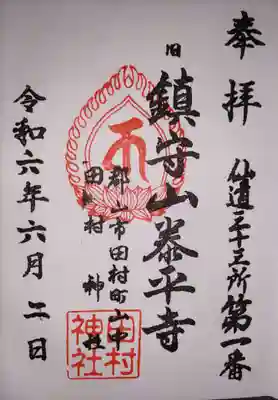 奉拝
仙道三十三所第一番
旧
鎮守山泰平寺
郡山市田村町山中
田村神社
田村神社
令和六年六月二日